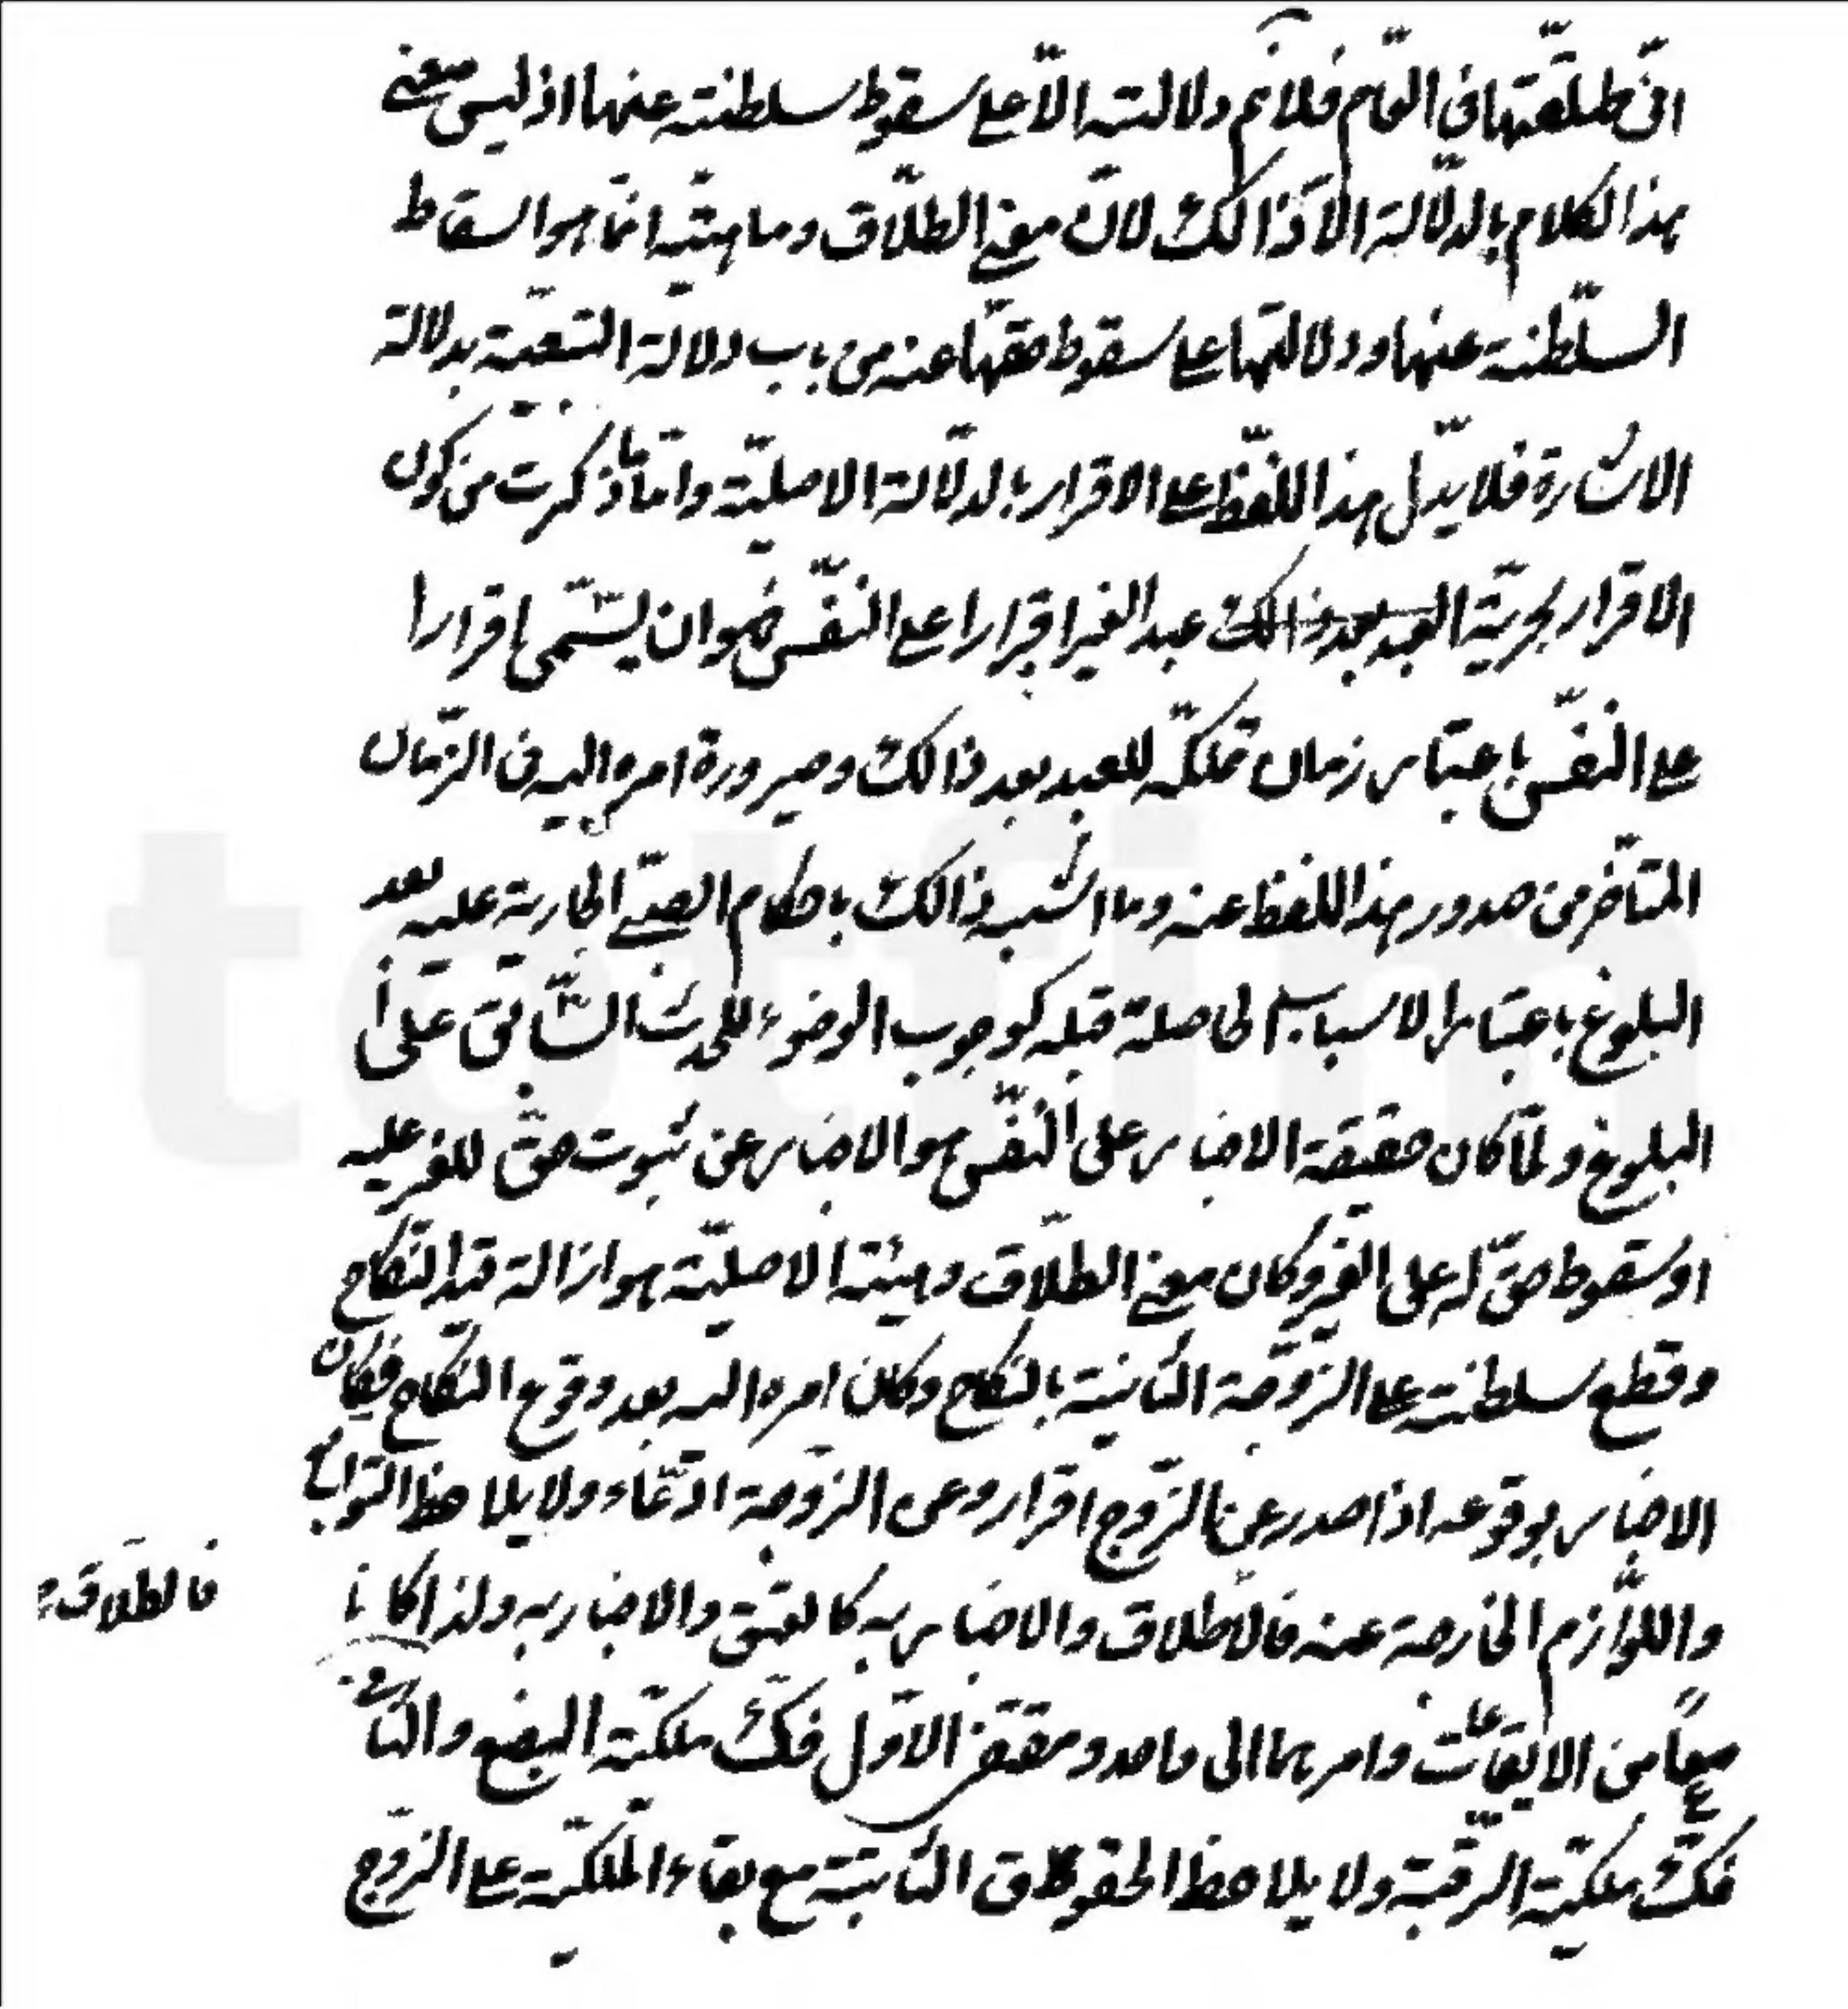 انّى طلّقتها فى العام فلانم دلالته الّا على سقوط سلطنته عنها اذ ليس معنى
هذا الكلام بالدلّالة الّا ذالك لانّ معنى الطلّاق وماهيّته انّما هو اسقاط
السلّطنة عنها ودلالتها على سقوط حقّها عنه من باب دلالة التبّعيّة بدلالة
الاشارة فلا يدّل هذا اللفّظ على الاقرار بالدلّالة الاصليّة وامّا ما ذكرت من كون
الاقرار بحريّة العبد بعد ذالك عبد الغير اقرارا على النفّس فهو ان يسّمى اقرارا
على النفّس باعتبار زمان تملكّه للعبد بعد ذالك وصيرورة امره اليه فى الزمّان
المتأخّر من صدور هذا اللفظ عنه وما اشبه ذالك باحكام الصبّى الجارية عليه بعد
البلوغ باعتبار الاسباب الحاصلة قبله كوجوب الوضوء للحدث السّابق على
البلوغ ولمّا كان حقيقة الاخبار على النفّس هو الاخبار عن ثبوت حقّ للغير عليه
او سقوط حقّ له على الغير وكان معنى الطلّاق وهيئته الاصليّة هو ازالة قيد النكّاح
وقطع سلطنته على الزوّجة الثّابتة بالنكاح وكان امره اليه بعد وقوع النكّاح فكان
الاخبار بوقوعه اذا صدر عن الزّوج اقرار وعن الزوّجة ادّعاء ولا يلاحظ التوّابع
واللوّازم الخارجة عنه فالاطلاق والاخبار به كالعتق والاخبار به ولذا كانا
فالطلّاق
معاً من الايقاعات وامرهما الى واحد ومقتضى الاوّل فكّ ملكيّة البضع والثّانى
فكّ ملكيّة الرقّبة ولا يلاحظ الحقوق الثّابتة مع بقاء الملكيّة على الزوّج